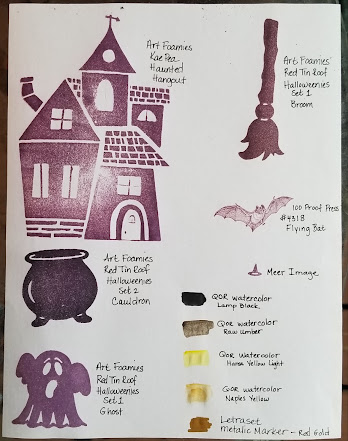 Art Foamies
Kae Pea
Haunted
Hangout
Art Foamies
Red Tin Roof
Halloweenies
Set 1
Broom
100 Proof Press
#4318
Flying Bat
Meer Image
Art Foamies
Red Tin Roof
Halloweenies
Set 2
Cauldron
QOR watercolor
Lamp Black
QOR watercolor
Raw Umber
QOR watercolor
Hansa Yellow Light
QOR watercolor
Naples Yellow
Art Foamies
Red Tin Roof
Halloweenies
Set 1
Ghost
Letraset
Metalic Marker - Red Gold